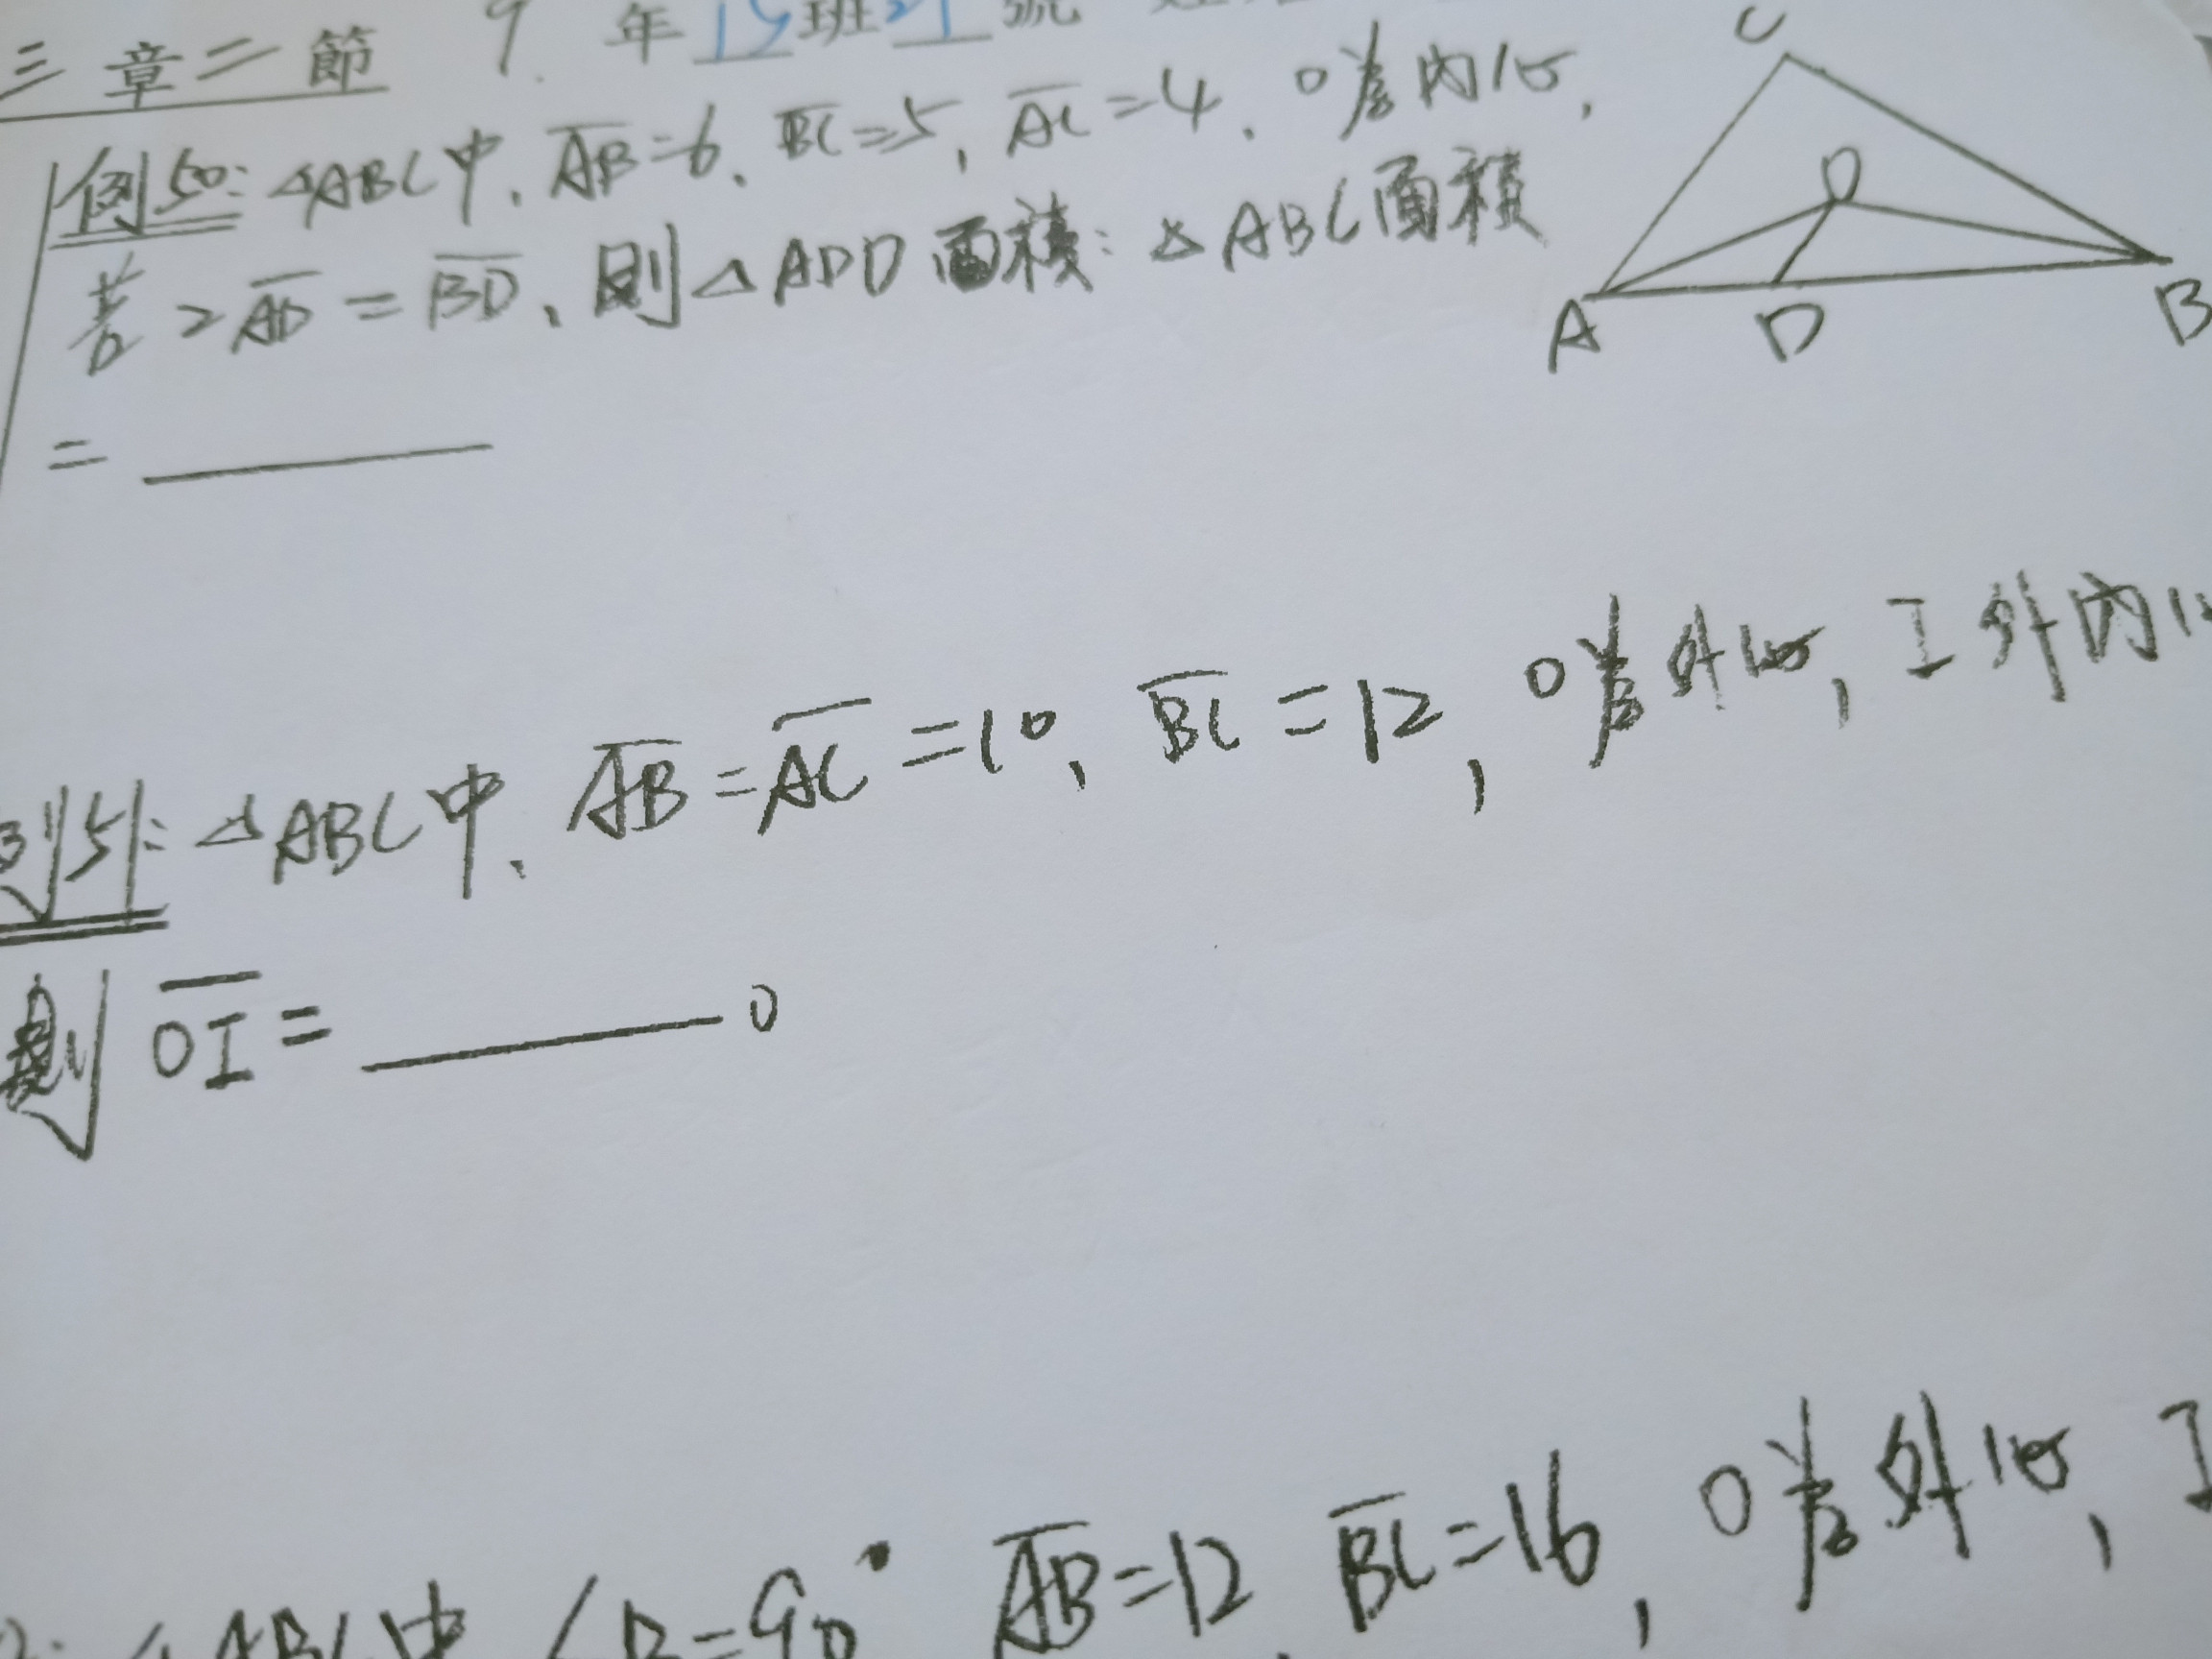 三章二節 9 年 15 班 21 號
例50: △ABC中, AB=6, BC=5, AC=4, O為內心,
若 2AD = BD, 則△ADO面積: △ABC面積
= ______
C
O
A D B
例51: △ABC中, AB=AC=10, BC=12, O為外心, I 為內心
則 OI = ______。
△ABC中 ∠B=90° AB=12, BC=16, O為外心, I